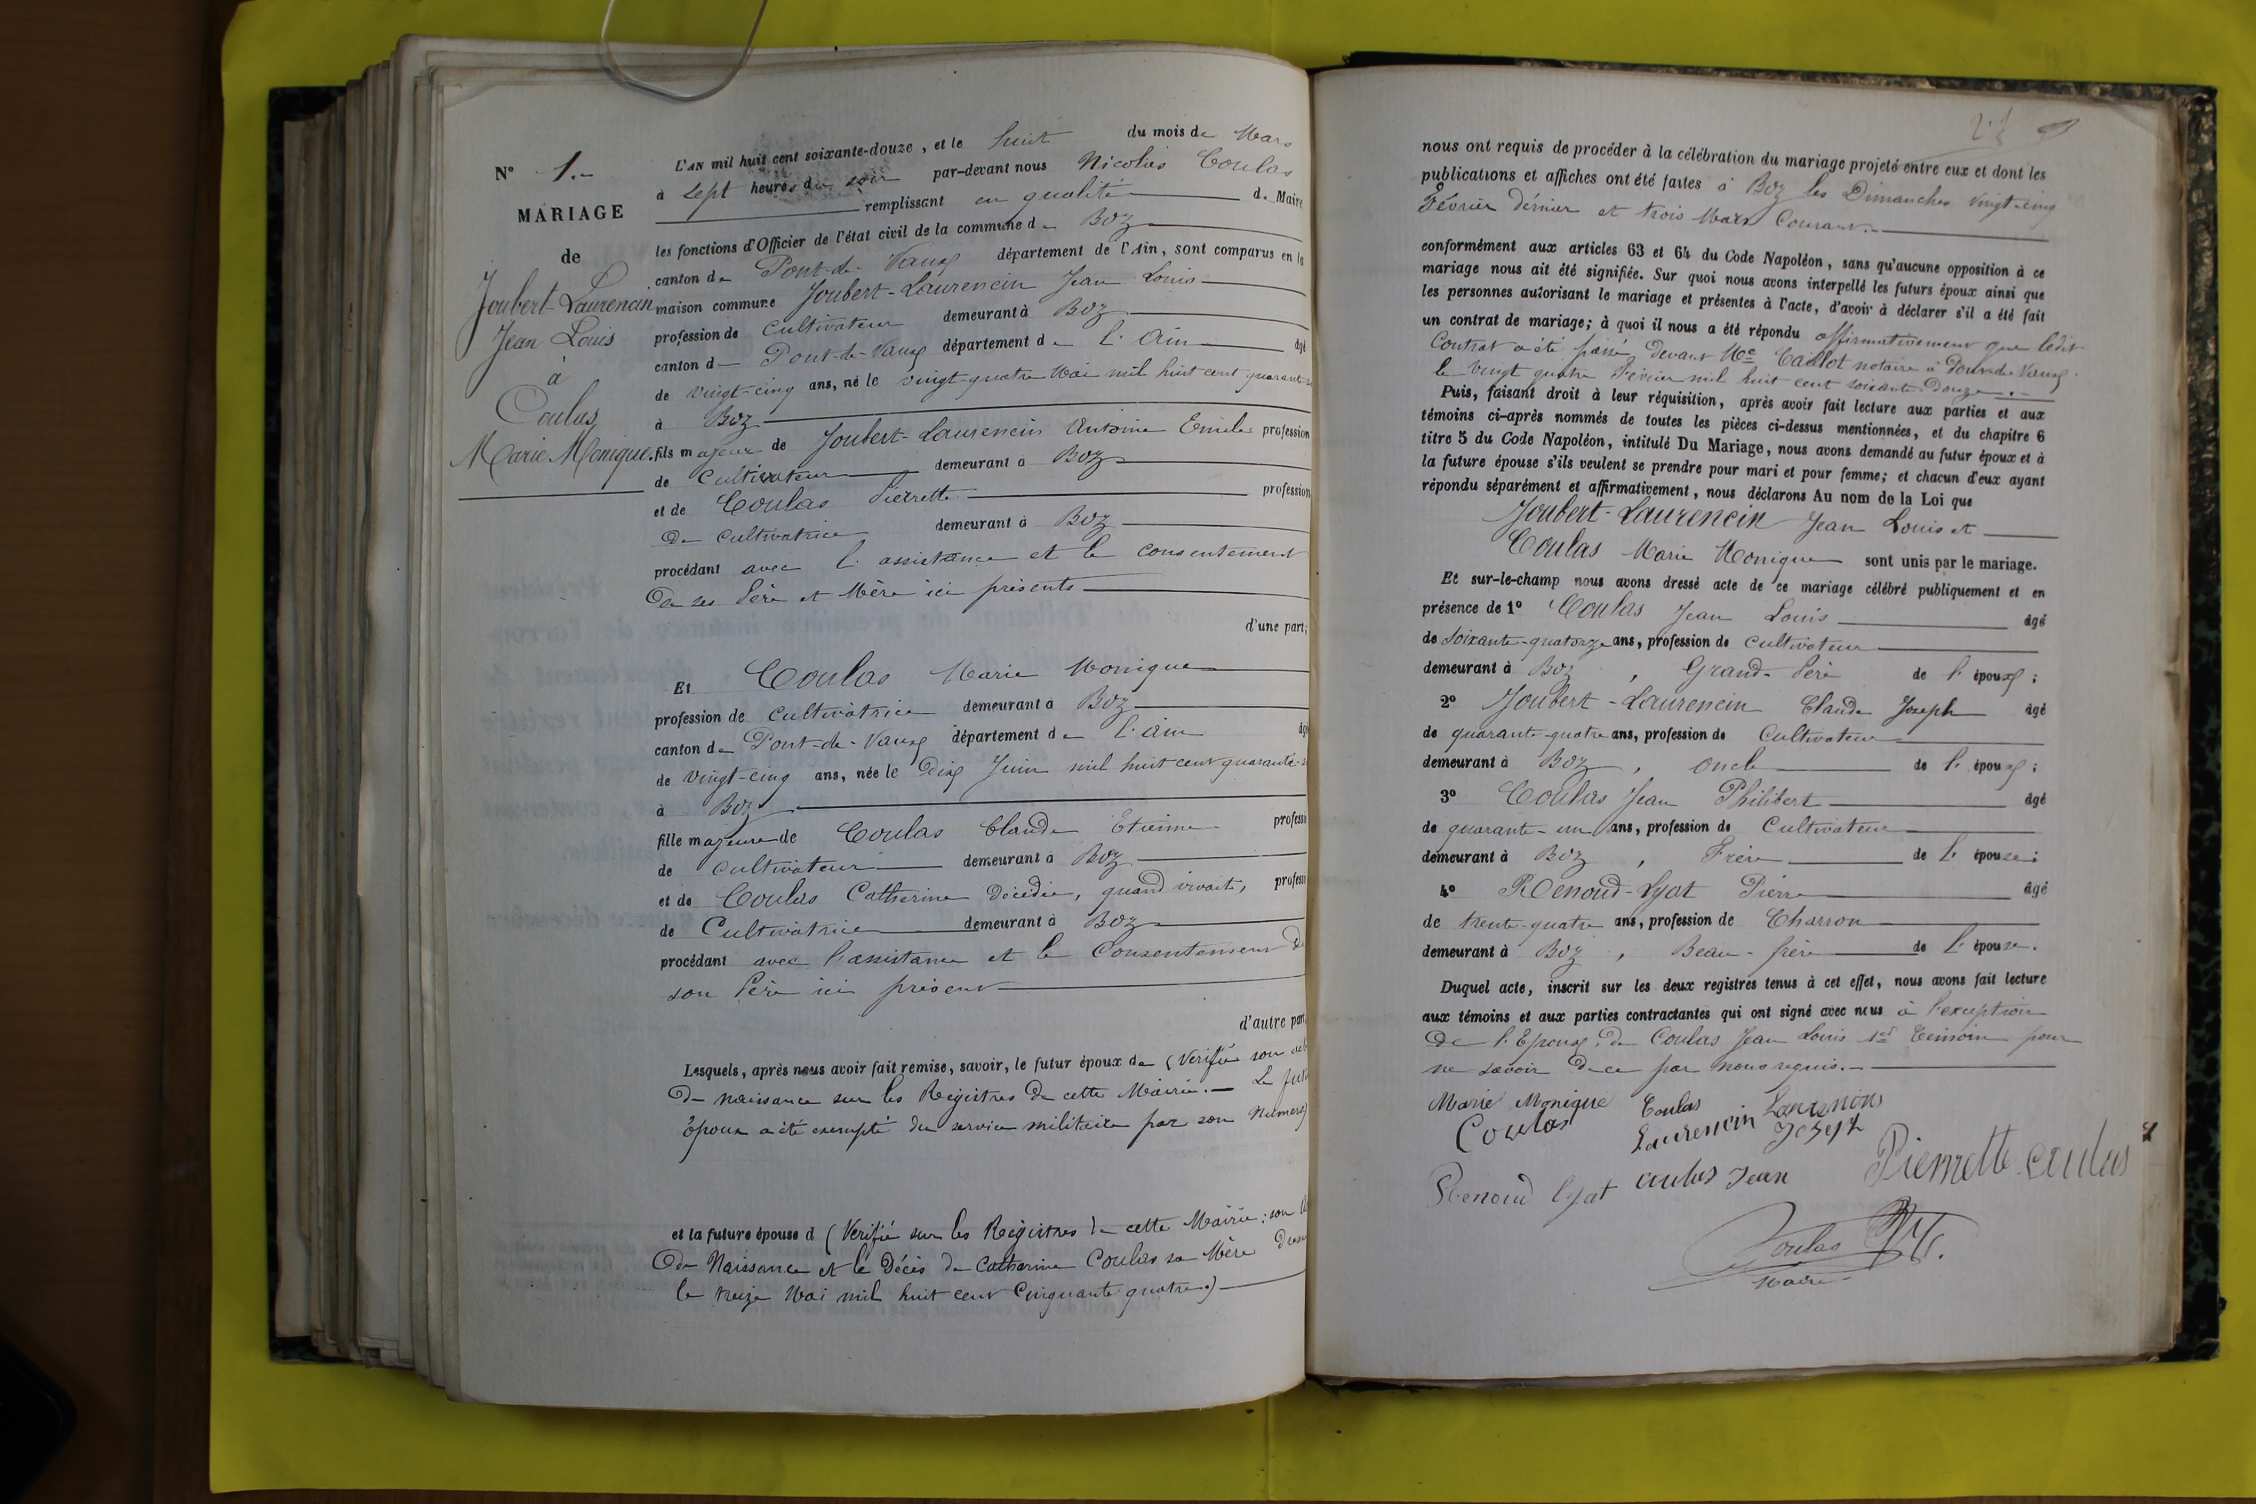 N° 1.-
MARIAGE
de
Joubert-Laurencin
Jean Louis
à
Coulas
Marie Monique.
L'AN mil huit cent soixante-douze, et le huit du mois de Mars
à sept heures du soir par-devant nous Nicolas Coulas
remplissant en qualité de Maire
les fonctions d'Officier de l'état civil de la commune de Boz
canton de Pont-de-Vaux département de l'Ain, sont comparus en la
maison commune Joubert-Laurencin Jean Louis
profession de cultivateur demeurant à Boz
canton de Pont-de-Vaux département de l'Ain âgé
de vingt-cinq ans, né le vingt-quatre Mai mil huit cent quarante-
à Boz
fils majeur de Joubert-Laurencin Antoine Emile profession
de Cultivateur demeurant à Boz
et de Coulas Pierrette profession
de cultivatrice demeurant à Boz
procédant avec l'assistance et le consentement
de ses Père et Mère ici présents
d'une part;
Et Coulas Marie Monique
profession de cultivatrice demeurant à Boz
canton de Pont-de-Vaux département de l'Ain âgé
de vingt-cinq ans, née le Dix Juin mil huit cent quarante-
à Boz
fille majeure de Coulas Claude Etienne professi
de cultivateur demeurant à Boz
et de Coulas Catherine Décédée, quand vivait, profess
de Cultivatrice demeurant à Boz
procédant avec l'assistance et le Consentement de
son Père ici présent
d'autre part,
Lesquels, après nous avoir fait remise, savoir, le futur époux de (Verifié son
de naissance sur les Régistres de cette Mairie.- Le futu
époux a été exempté du service militaire par son Numero)
et la future épouse d (Verifié sur les Régistres de cette Mairie: son
de Naissance et le Décès de Catherine Coulas sa Mère
le treize Mai mil huit cent Cinquante quatre.)
nous ont requis de procéder à la célébration du mariage projeté entre eux et dont les
publications et affiches ont été faites à Boz les Dimanches vingt-cinq
Février dernier et trois Mars Courant.-
conformément aux articles 63 et 64 du Code Napoléon, sans qu'aucune opposition à ce
mariage nous ait été signifiée. Sur quoi nous avons interpellé les futurs époux ainsi que
les personnes autorisant le mariage et présentes à l'acte, d'avoir à déclarer s'il a été fait
un contrat de mariage; à quoi il nous a été répondu affirmativement que ledit
Contrat a été passé devant Me notaire à Pont-de-Vaux
le vingt quatre Février mil huit cent soixante-Douze.-
Puis, faisant droit à leur réquisition, après avoir fait lecture aux parties et aux
témoins ci-après nommés de toutes les pièces ci-dessus mentionnées, et du chapitre 6
titre 5 du Code Napoléon, intitulé Du Mariage, nous avons demandé au futur époux et à
la future épouse s'ils veulent se prendre pour mari et pour femme; et chacun d'eux ayant
répondu séparément et affirmativement, nous déclarons Au nom de la Loi que
Joubert-Laurencin Jean Louis et
Coulas Marie Monique sont unis par le mariage.
Et sur-le-champ nous avons dressé acte de ce mariage célébré publiquement et en
présence de 1° Coulas Jean Louis âgé
de soixante-quatorze ans, profession de cultivateur
demeurant à Boz, Grand-Père de l'époux;
2° Joubert-Laurencin Claude Joseph âgé
de quarante-quatre ans, profession de Cultivateur
demeurant à Boz, oncle de l'époux;
3° Coulas Jean Philibert âgé
de quarante-un ans, profession de Cultivateur
demeurant à Boz, Frère de l'épouse;
4° Renoud-Lyat Pierre âgé
de trente-quatre ans, profession de Charron
demeurant à Boz, Beau-frère de l'épouse.
Duquel acte, inscrit sur les deux registres tenus à cet effet, nous avons fait lecture
aux témoins et aux parties contractantes qui ont signé avec nous à l'exception
de l'Epoux, de Coulas Jean Louis 1er témoin pour
ne savoir de ce par nous requis.-
Marie Monique Coulas
Coulas Laurencin Joseph
Renoud Lyat Coulas Jean Pierrette Coulas
Coulas
Maire